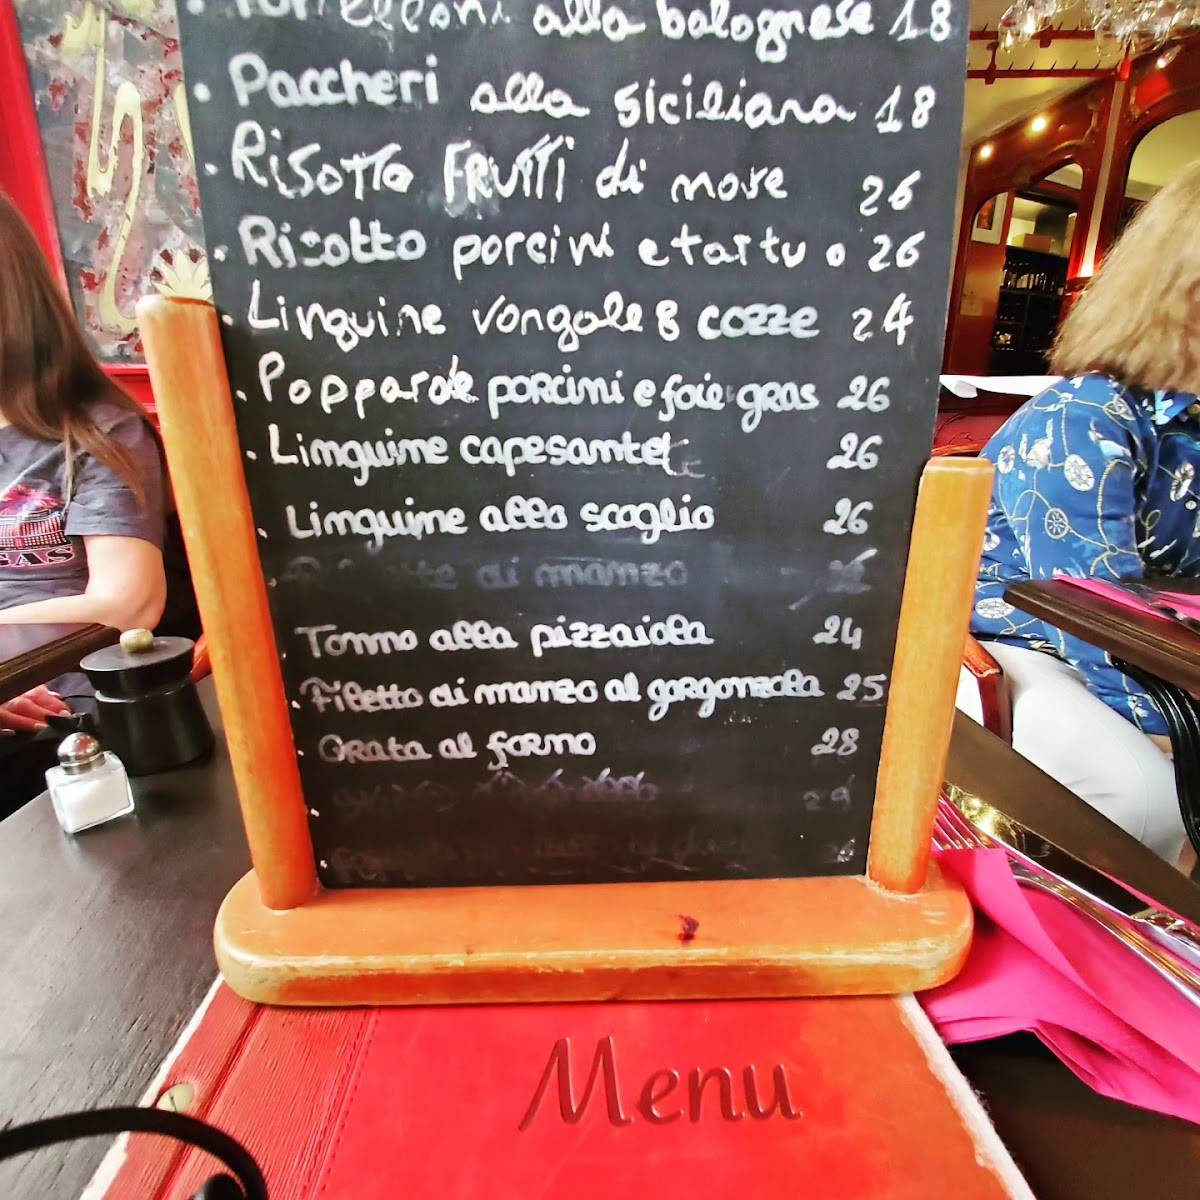 alla bolognese 18
• Paccheri alla siciliana 18
• RISOTTO FRUTTI di mare 26
• Risotto porcini e tartu o 26
• Linguine vongole & cozze 24
• Popparde porcini e foie gras 26
• Linguine capesante 26
• Linguine allo scoglio 26
di manzo
Tonno alla pizzaiola 24
• Filetto di manzo al gorgonzola 25
• ORata al forno 28
29
Menu
GAS